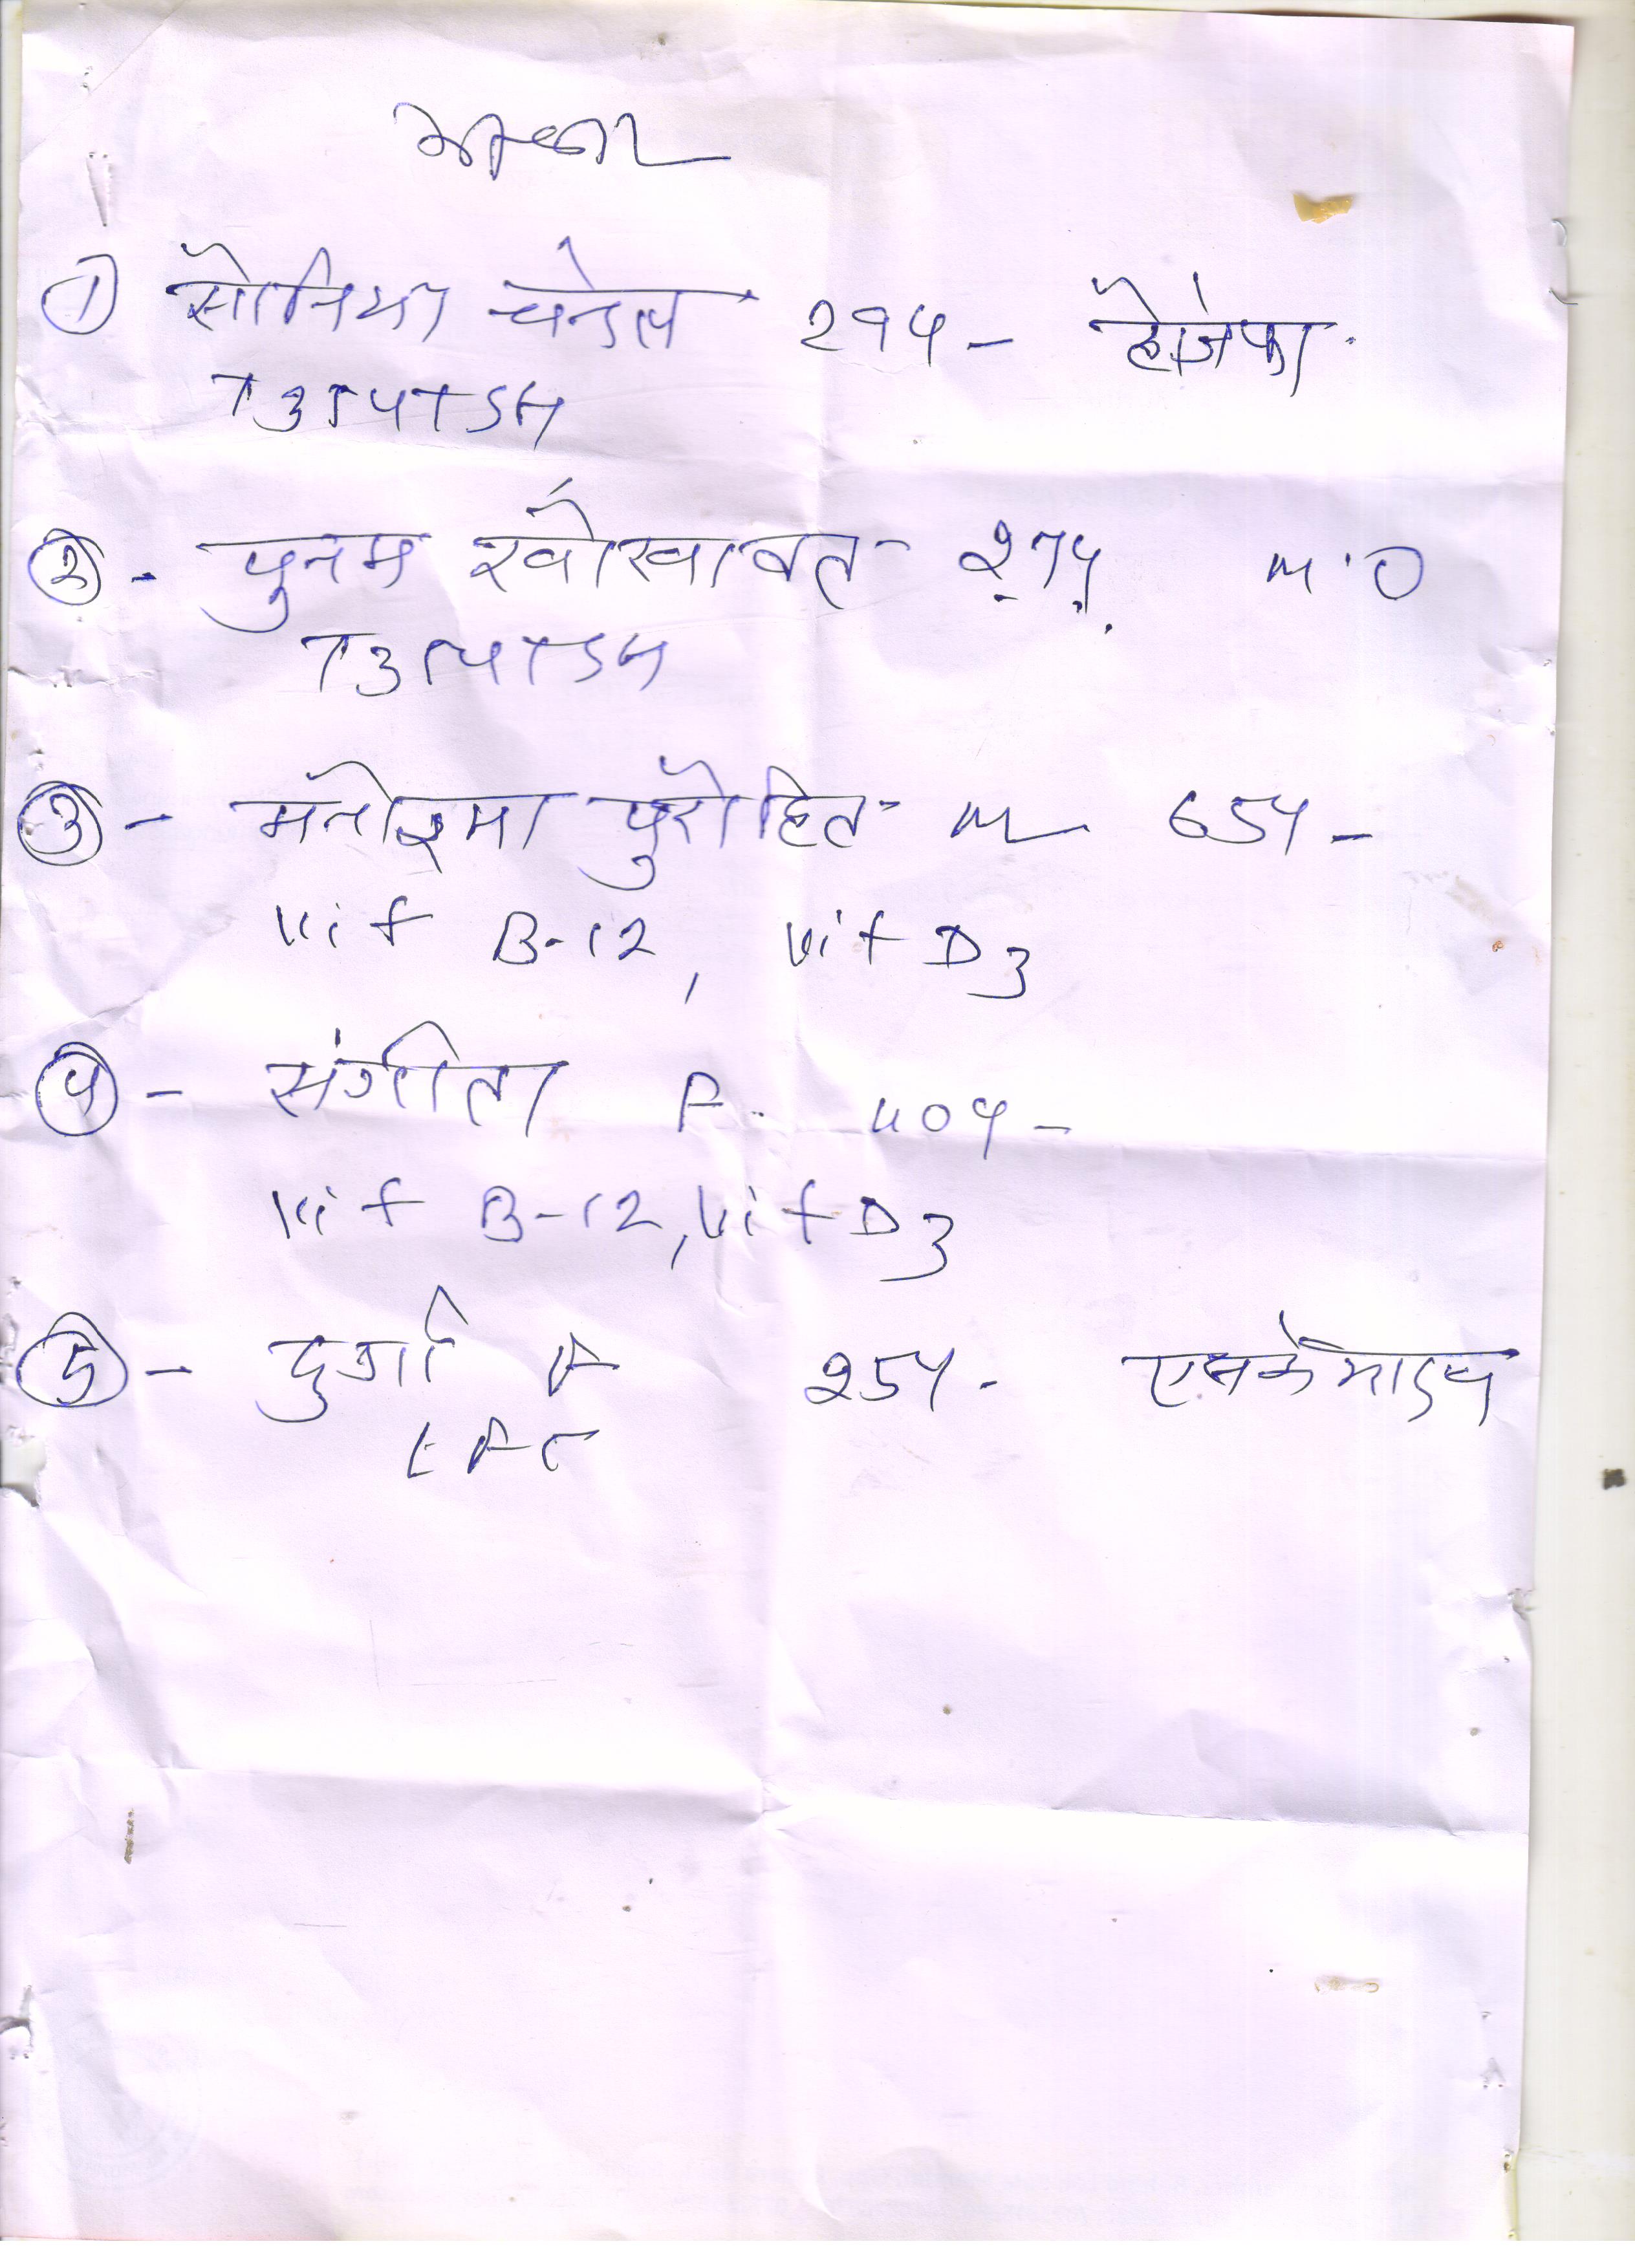 ① सोनिया चन्देल 29Y -
T3T4TSH
② - पुनम खोखावत - 27Y. M.O
T3T4TSH
③ - मनोरमा पुरोहित - M 65Y -
Vit B-12, Vit D3
④ - संगीता F. 40Y -
Vit B-12, Vit D3
⑤ - दुर्गा F 25Y -
LFT